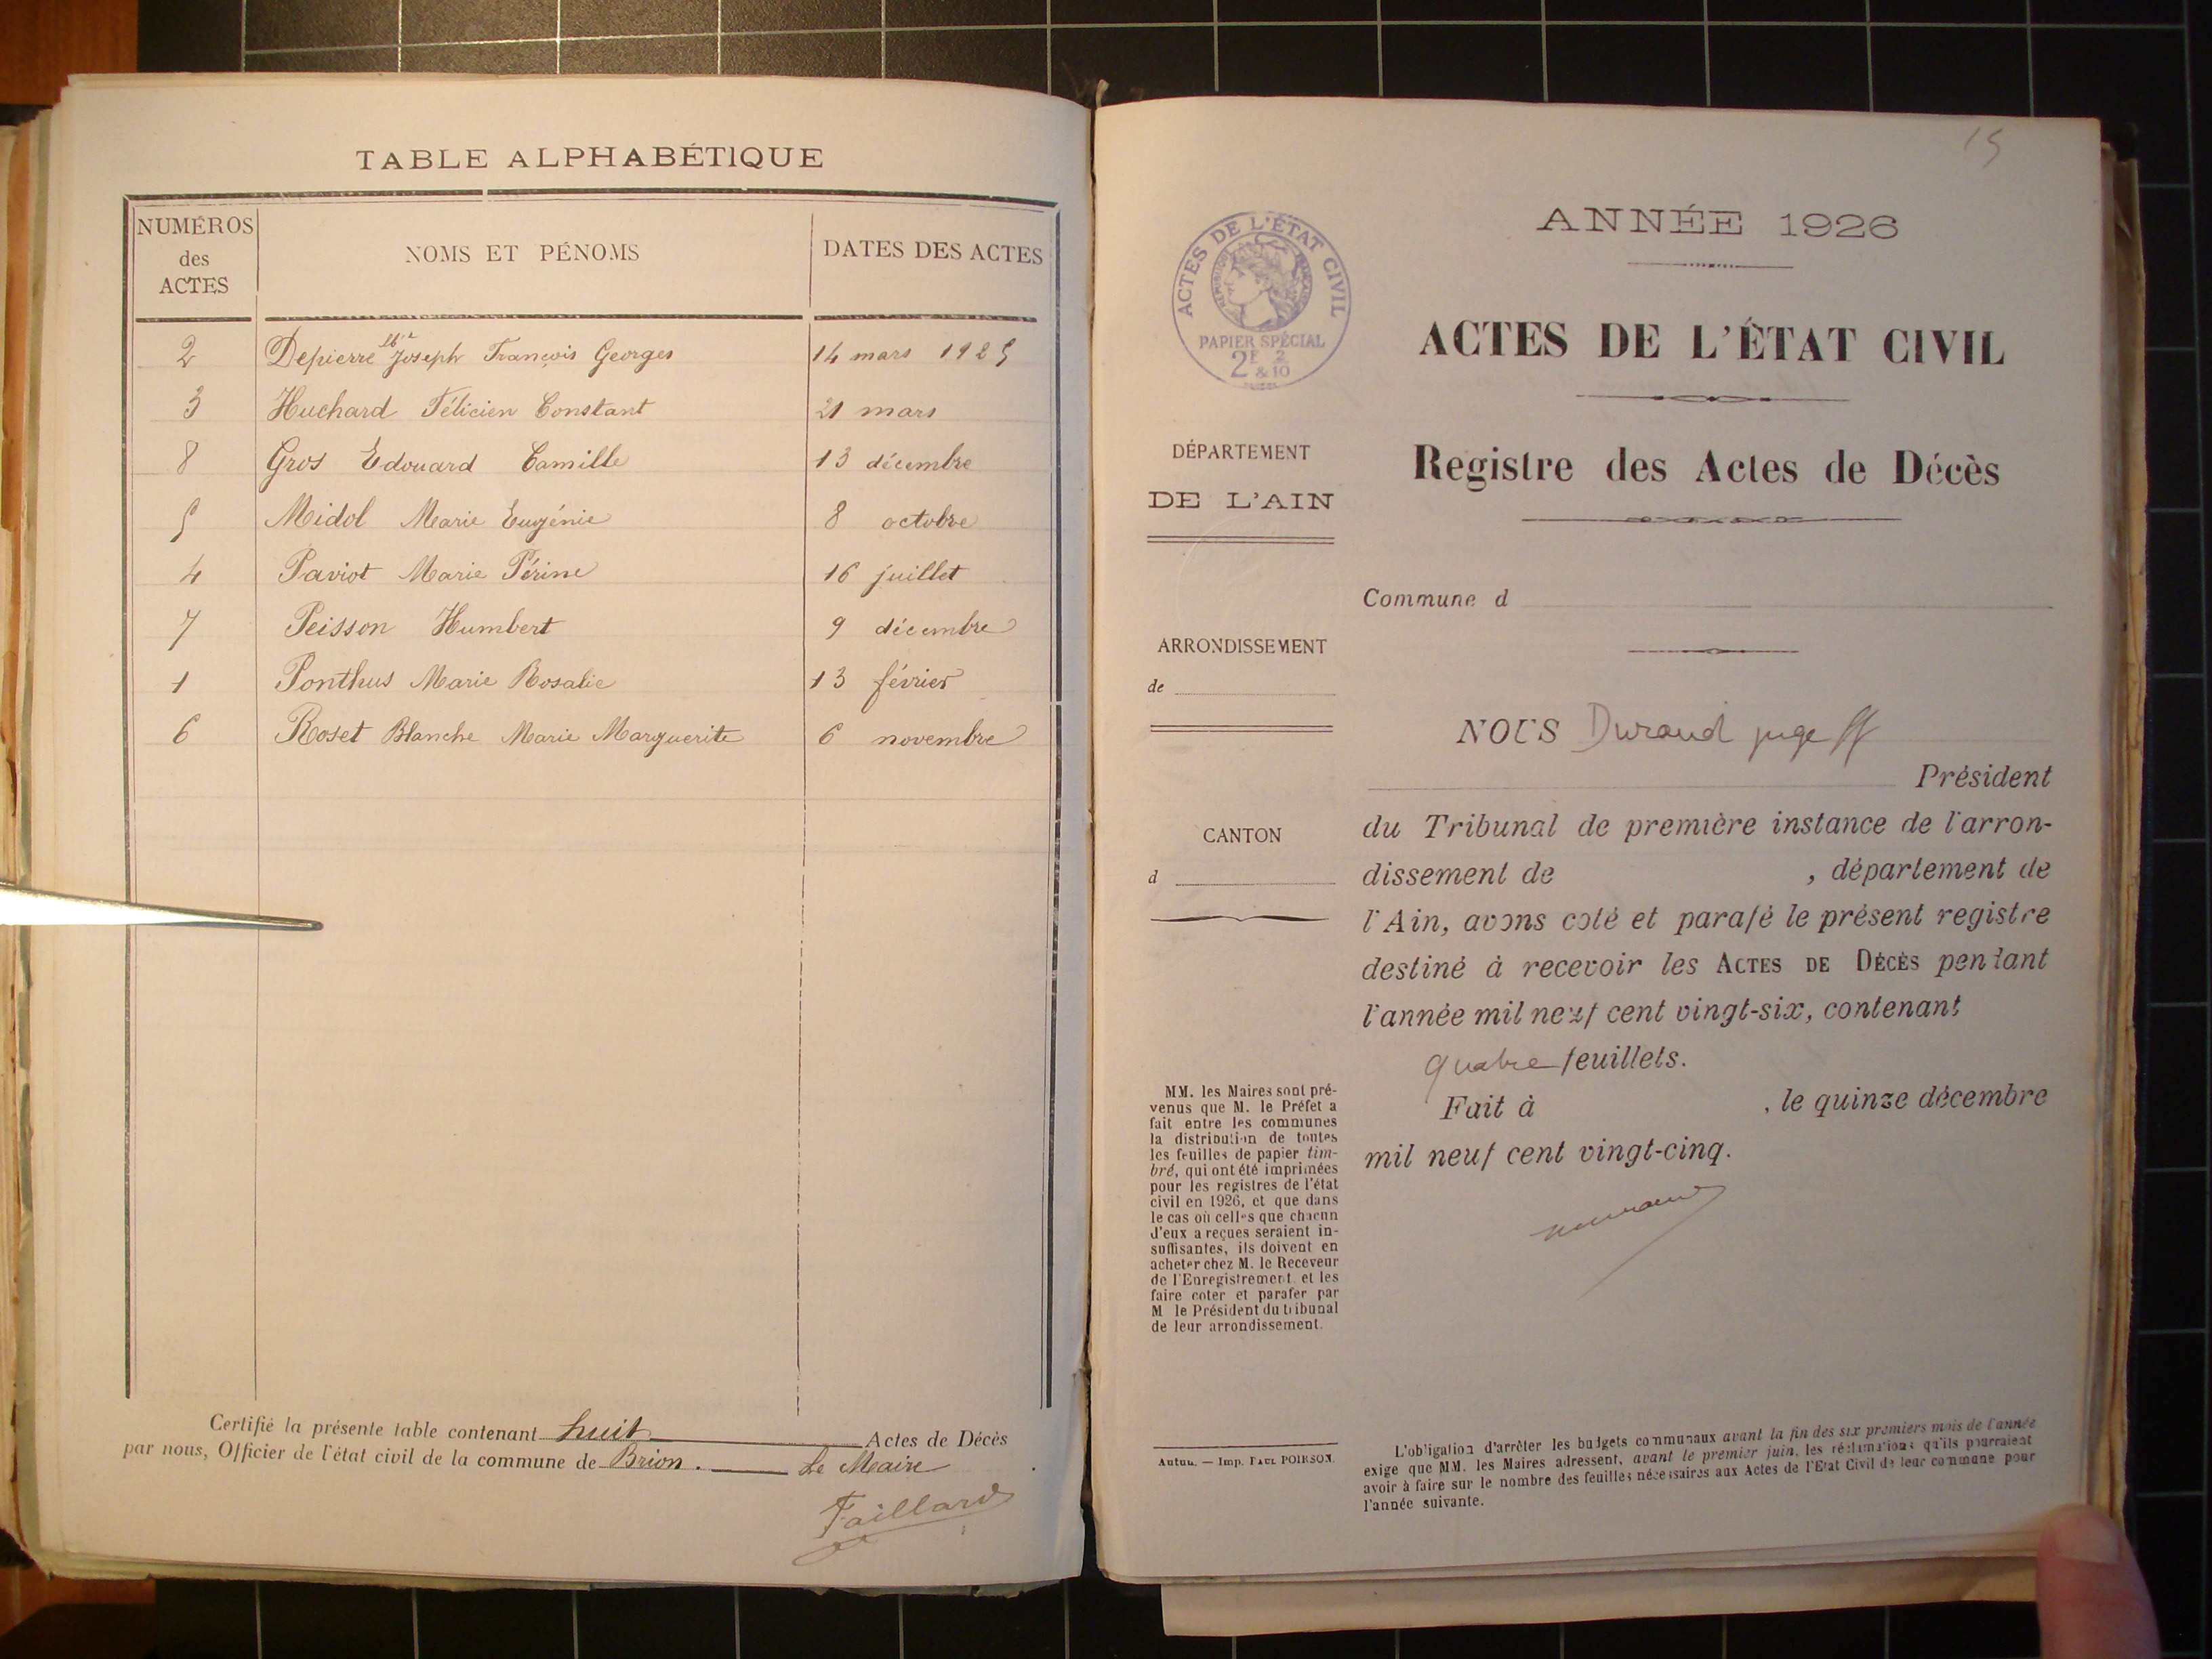 TABLE ALPHABÉTIQUE
NUMÉROS des ACTES
NOMS ET PÉNOMS
DATES DES ACTES
2 Depierre Joseph François Georges 14 mars 1925
3 Huchard Félicien Constant 21 mars
8 Gros Edouard Camille 13 décembre
5 Midol Marie Eugénie 8 octobre
4 Paviot Marie Périne 16 juillet
7 Peisson Humbert 9 décembre
1 Ponthus Marie Rosalie 13 février
6 Roset Blanche Marie Marguerite 6 novembre
Certifié la présente table contenant huit Actes de Décès
par nous, Officier de l'état civil de la commune de Brion. Le Maire
Faillard
15
ANNÉE 1926
ACTES DE L'ÉTAT CIVIL
RÉPUBLIQUE FRANÇAISE
PAPIER SPÉCIAL
2F 2
&10
ACTES DE L'ÉTAT CIVIL
Registre des Actes de Décès
DÉPARTEMENT
DE L'AIN
Commune d
ARRONDISSEMENT
de
CANTON
d
NOUS Durand juge ff
Président
du Tribunal de première instance de l'arron-
dissement de , département de
l'Ain, avons coté et parafé le présent registre
destiné à recevoir les ACTES DE DÉCÈS pendant
l'année mil neuf cent vingt-six, contenant
quatre feuillets.
Fait à , le quinze décembre
mil neuf cent vingt-cinq.
MM. les Maires sont pré-
venus que M. le Préfet a
fait entre les communes
la distribution de toutes
les feuilles de papier tim-
bré, qui ont été imprimées
pour les registres de l'état
civil en 1926, et que dans
le cas où celles que chacun
d'eux a reçues seraient in-
suffisantes, ils doivent en
acheter chez M. le Receveur
de l'Enregistrement et les
faire coter et parafer par
M le Président du tribunal
de leur arrondissement.
Autun. — Imp. PAUL POIRSON.
L'obligation d'arrêter les budgets communaux avant la fin des six premiers mois de l'année
exige que MM. les Maires adressent, avant le premier juin, les réclamations qu'ils pourraient
avoir à faire sur le nombre des feuilles nécessaires aux Actes de l'Etat Civil de leur commune pour
l'année suivante.